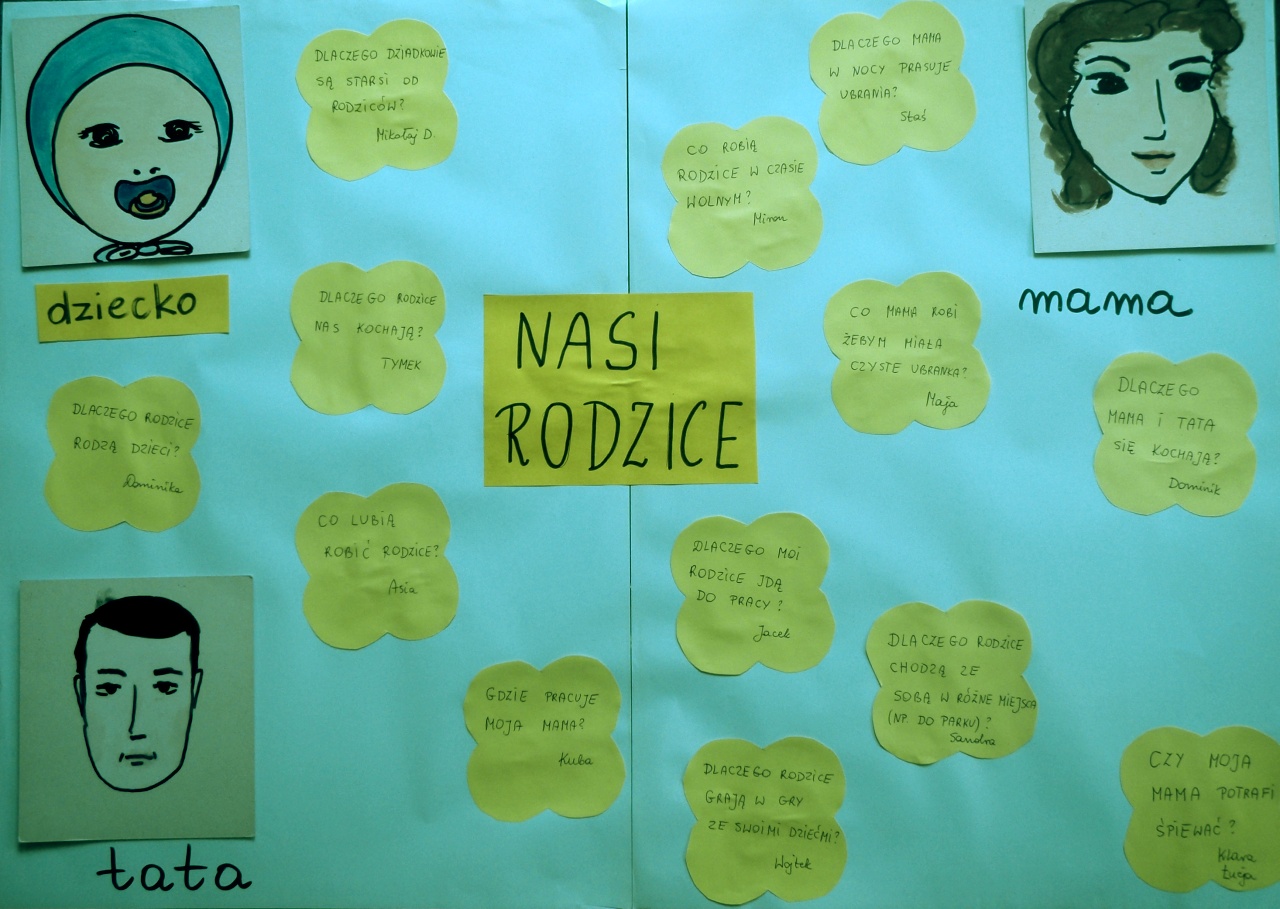 DLACZEGO DZIADKOWIE
SĄ STARSI OD
RODZICÓW?
Mikołaj D.
DLACZEGO MAMA
W NOCY PRASUJE
UBRANIA?
Staś
CO ROBIĄ
RODZICE W CZASIE
WOLNYM?
Miron
dziecko
DLACZEGO RODZICE
NAS KOCHAJĄ?
TYMEK
NASI
RODZICE
CO MAMA ROBI
ŻEBYM MIAŁA
CZYSTE UBRANKA?
Maja
mama
DLACZEGO RODZICE
RODZĄ DZIECI?
Dominika
DLACZEGO
MAMA I TATA
SIĘ KOCHAJĄ?
Dominik
CO LUBIĄ
ROBIĆ RODZICE?
Asia
DLACZEGO MOI
RODZICE IDĄ
DO PRACY?
Jacek
DLACZEGO RODZICE
CHODZĄ ZE
SOBĄ W RÓŻNE MIEJSCA
(NP. DO PARKU)?
Sandra
GDZIE PRACUJE
MOJA MAMA?
Kuba
DLACZEGO RODZICE
GRAJĄ W GRY
ZE SWOIMI DZIEĆMI?
Wojtek
CZY MOJA
MAMA POTRAFI
ŚPIEWAĆ?
Klara
Łucja
tata